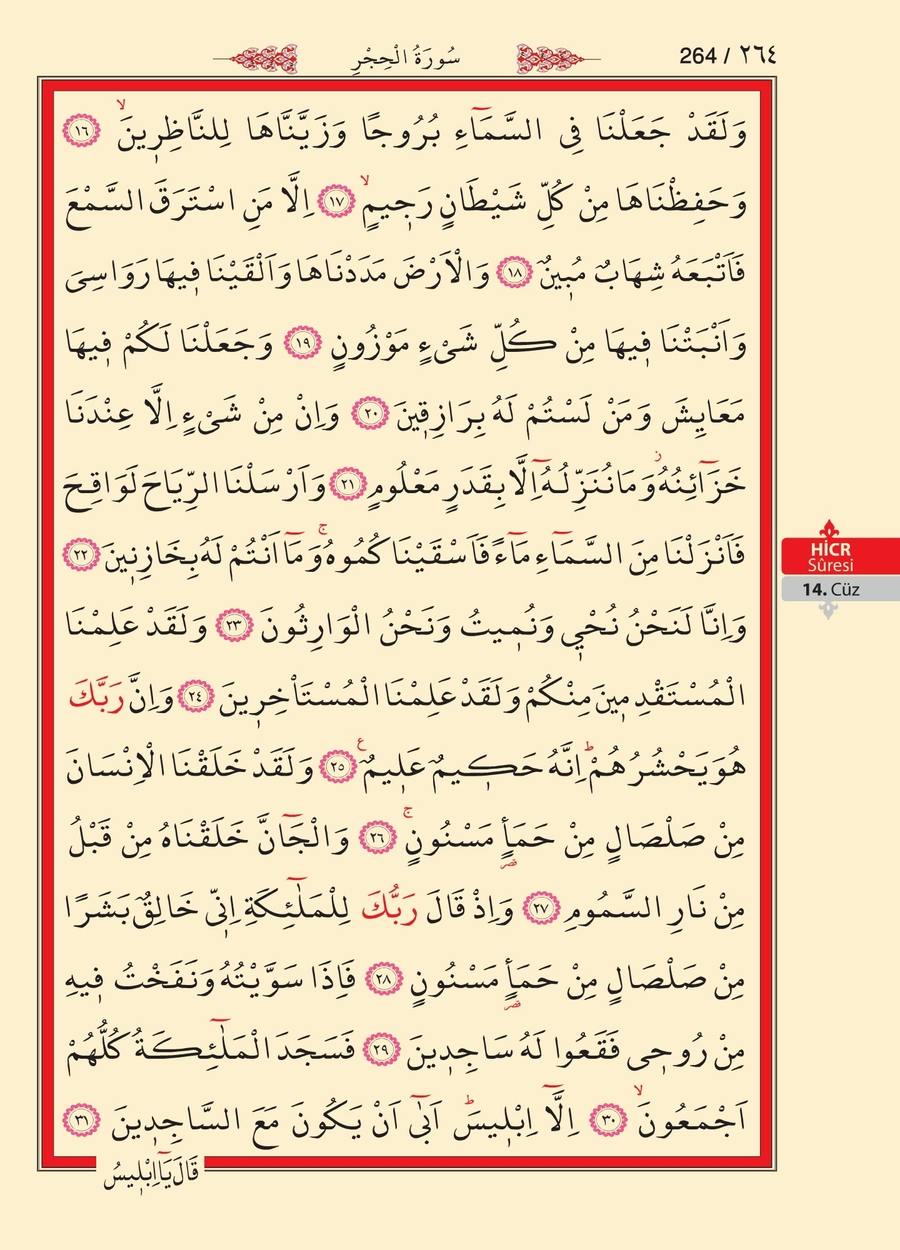 ٢٦٤ / 264
سُورَةُ الْحِجْرِ
وَلَقَدْ جَعَلْنَا فِى السَّمَٓاءِ بُرُوجًا وَزَيَّنَّاهَا لِلنَّاظِر۪ينَۙ ﴿١٦﴾
وَحَفِظْنَاهَا مِنْ كُلِّ شَيْطَانٍ رَج۪يمٍۙ ﴿١٧﴾ اِلَّا مَنِ اسْتَرَقَ السَّمْعَ
فَاَتْبَعَهُ شِهَابٌ مُب۪ينٌ ﴿١٨﴾ وَالْاَرْضَ مَدَدْنَاهَا وَاَلْقَيْنَا ف۪يهَا رَوَاسِىَ
وَاَنْبَتْنَا ف۪يهَا مِنْ كُلِّ شَىْءٍ مَوْزُونٍ ﴿١٩﴾ وَجَعَلْنَا لَكُمْ ف۪يهَا
مَعَايِشَ وَمَنْ لَسْتُمْ لَهُ بِرَازِق۪ينَ ﴿٢٠﴾ وَاِنْ مِنْ شَىْءٍ اِلَّا عِنْدَنَا
خَزَٓائِنُهُۘ وَمَا نُنَزِّلُهُٓ اِلَّا بِقَدَرٍ مَعْلُومٍ ﴿٢١﴾ وَاَرْسَلْنَا الرِّيَاحَ لَوَاقِحَ
فَاَنْزَلْنَا مِنَ السَّمَٓاءِ مَٓاءً فَاَسْقَيْنَاكُمُوهُۚ وَمَٓا اَنْتُمْ لَهُ بِخَازِن۪ينَ ﴿٢٢﴾
وَاِنَّا لَنَحْنُ نُحْي۪ وَنُم۪يتُ وَنَحْنُ الْوَارِثُونَ ﴿٢٣﴾ وَلَقَدْ عَلِمْنَا
الْمُسْتَقْدِم۪ينَ مِنْكُمْ وَلَقَدْ عَلِمْنَا الْمُسْتَأْخِر۪ينَ ﴿٢٤﴾ وَاِنَّ رَبَّكَ
هُوَ يَحْشُرُهُمْۜ اِنَّهُ حَك۪يمٌ عَل۪يمٌ۟ ﴿٢٥﴾ وَلَقَدْ خَلَقْنَا الْاِنْسَانَ
مِنْ صَلْصَالٍ مِنْ حَمَأٍ مَسْنُونٍۚ ﴿٢٦﴾ وَالْجَٓانَّ خَلَقْنَاهُ مِنْ قَبْلُ
مِنْ نَارِ السَّمُومِ ﴿٢٧﴾ وَاِذْ قَالَ رَبُّكَ لِلْمَلٰٓئِكَةِ اِنّ۪ى خَالِقٌ بَشَرًا
مِنْ صَلْصَالٍ مِنْ حَمَأٍ مَسْنُونٍ ﴿٢٨﴾ فَاِذَا سَوَّيْتُهُ وَنَفَخْتُ ف۪يهِ
مِنْ رُوح۪ى فَقَعُوا لَهُ سَاجِد۪ينَ ﴿٢٩﴾ فَسَجَدَ الْمَلٰٓئِكَةُ كُلُّهُمْ
اَجْمَعُونَۙ ﴿٣٠﴾ اِلَّٓا اِبْل۪يسَۜ اَبٰٓى اَنْ يَكُونَ مَعَ السَّاجِد۪ينَ ﴿٣١﴾
قَالَ يَٓا اِبْل۪يسُ
HİCR
Sûresi
14. Cüz